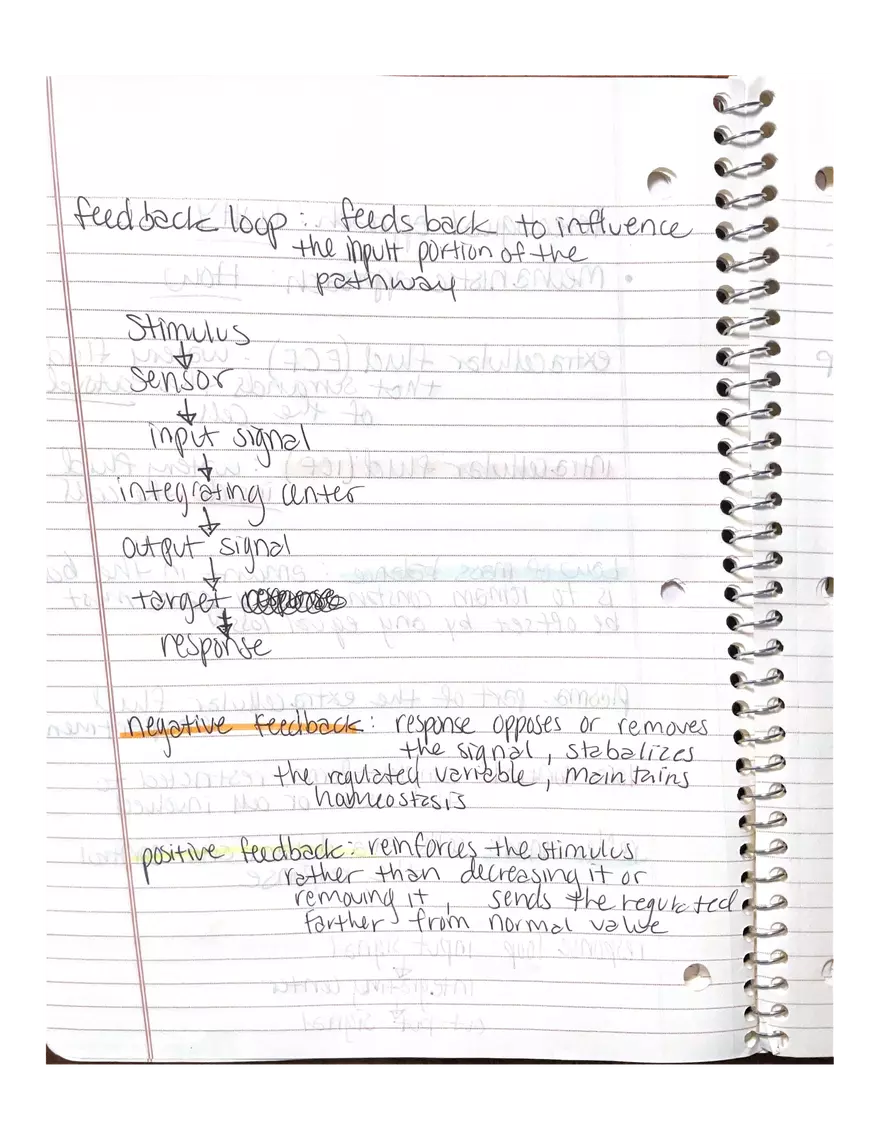 feedback loop: feeds back to influence
the inputt portion of the
pathway
Stimulus
sensor
input signal
integrating center
output signal
target
response
negative feedback: response opposes or removes
the signal, stabalizes
the regulated variable, maintains
homeostasis
positive feedback: reinforces the stimulus
rather than decreasing it or
removing it, sends the regulated
farther from normal value